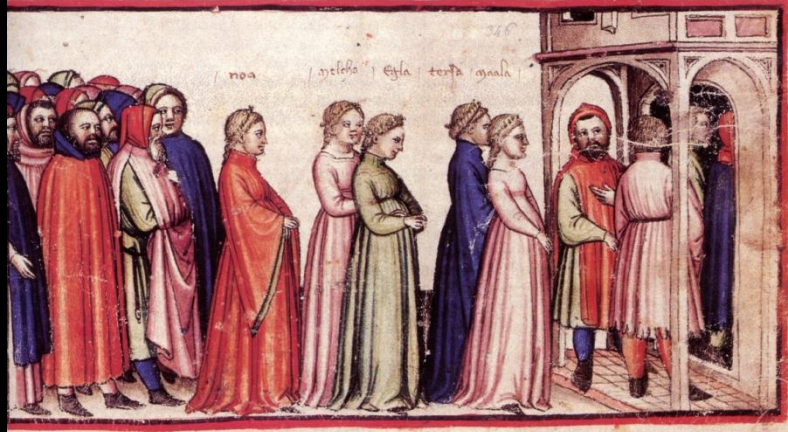 346.
noa melcho Egla tersa maala